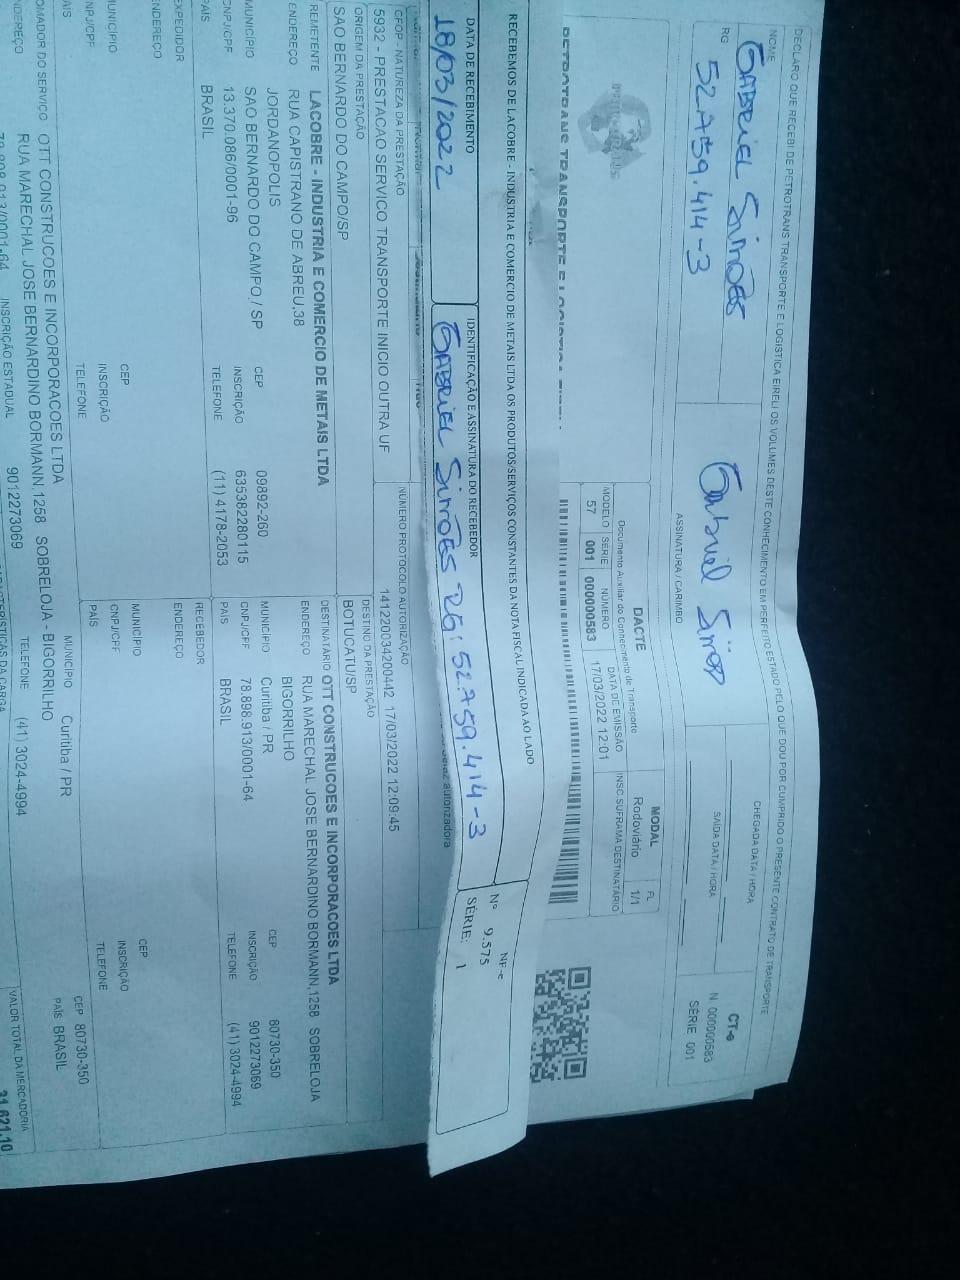 DECLARO QUE RECEBI DE PETROTRANS TRANSPORTE E LOGISTICA EIRELI OS VOLUMES DESTE CONHECIMENTO EM PERFEITO ESTADO PELO QUE DOU POR CUMPRIDO O PRESENTE CONTRATO DE TRANSPORTE
NOME
GABRIEL SIMÕES
RG
52.759.414-3
Gabriel Simões
ASSINATURA / CARIMBO
CHEGADA DATA / HORA
SAÍDA DATA / HORA
CT-e
N 000000583
SÉRIE 001
DACTE
Documento Auxiliar do Conhecimento de Transporte
MODELO SÉRIE NÚMERO DATA DE EMISSÃO INSC.SUFRAMA DESTINATÁRIO
57 001 000000583 17/03/2022 12:01
MODAL
Rodoviário
FL
1/1
PETROTRANS TRANSPORTE E LOGISTICA
RECEBEMOS DE LACOBRE - INDUSTRIA E COMERCIO DE METAIS LTDA OS PRODUTOS/SERVIÇOS CONSTANTES DA NOTA FISCAL INDICADA AO LADO
NF-e
Nº 9.575
SÉRIE: 1
DATA DE RECEBIMENTO
18/03/2022
IDENTIFICAÇÃO E ASSINATURA DO RECEBEDOR
GABRIEL SIMÕES RG: 52.759.414-3
autorizadora
CFOP - NATUREZA DA PRESTAÇÃO
5932 - PRESTACAO SERVICO TRANSPORTE INICIO OUTRA UF
NÚMERO PROTOCOLO AUTORIZAÇÃO
141220034200442 17/03/2022 12:09:45
ORIGEM DA PRESTAÇÃO
SAO BERNARDO DO CAMPO/SP
DESTINO DA PRESTAÇÃO
BOTUCATU/SP
REMETENTE LACOBRE - INDUSTRIA E COMERCIO DE METAIS LTDA
ENDEREÇO RUA CAPISTRANO DE ABREU,38
JORDANOPOLIS
MUNICÍPIO SAO BERNARDO DO CAMPO / SP CEP 09892-260
CNPJ/CPF 13.370.086/0001-96 INSCRIÇÃO 635382280115
PAÍS BRASIL TELEFONE (11) 4178-2053
DESTINATÁRIO OTT CONSTRUCOES E INCORPORACOES LTDA
ENDEREÇO RUA MARECHAL JOSE BERNARDINO BORMANN,1258 SOBRELOJA
BIGORRILHO
MUNICÍPIO Curitiba / PR CEP 80730-350
CNPJ/CPF 78.898.913/0001-64 INSCRIÇÃO 9012273069
PAÍS BRASIL TELEFONE (41) 3024-4994
EXPEDIDOR
ENDEREÇO
MUNICÍPIO CEP
CNPJ/CPF INSCRIÇÃO
PAÍS TELEFONE
RECEBEDOR
ENDEREÇO
MUNICÍPIO CEP
CNPJ/CPF INSCRIÇÃO
PAÍS TELEFONE
OMADOR DO SERVIÇO OTT CONSTRUCOES E INCORPORACOES LTDA MUNICÍPIO Curitiba / PR CEP 80730-350
NDEREÇO RUA MARECHAL JOSE BERNARDINO BORMANN,1258 SOBRELOJA - BIGORRILHO PAÍS BRASIL
INSCRIÇÃO ESTADUAL 9012273069 TELEFONE (41) 3024-4994
VALOR TOTAL DA MERCADORIA